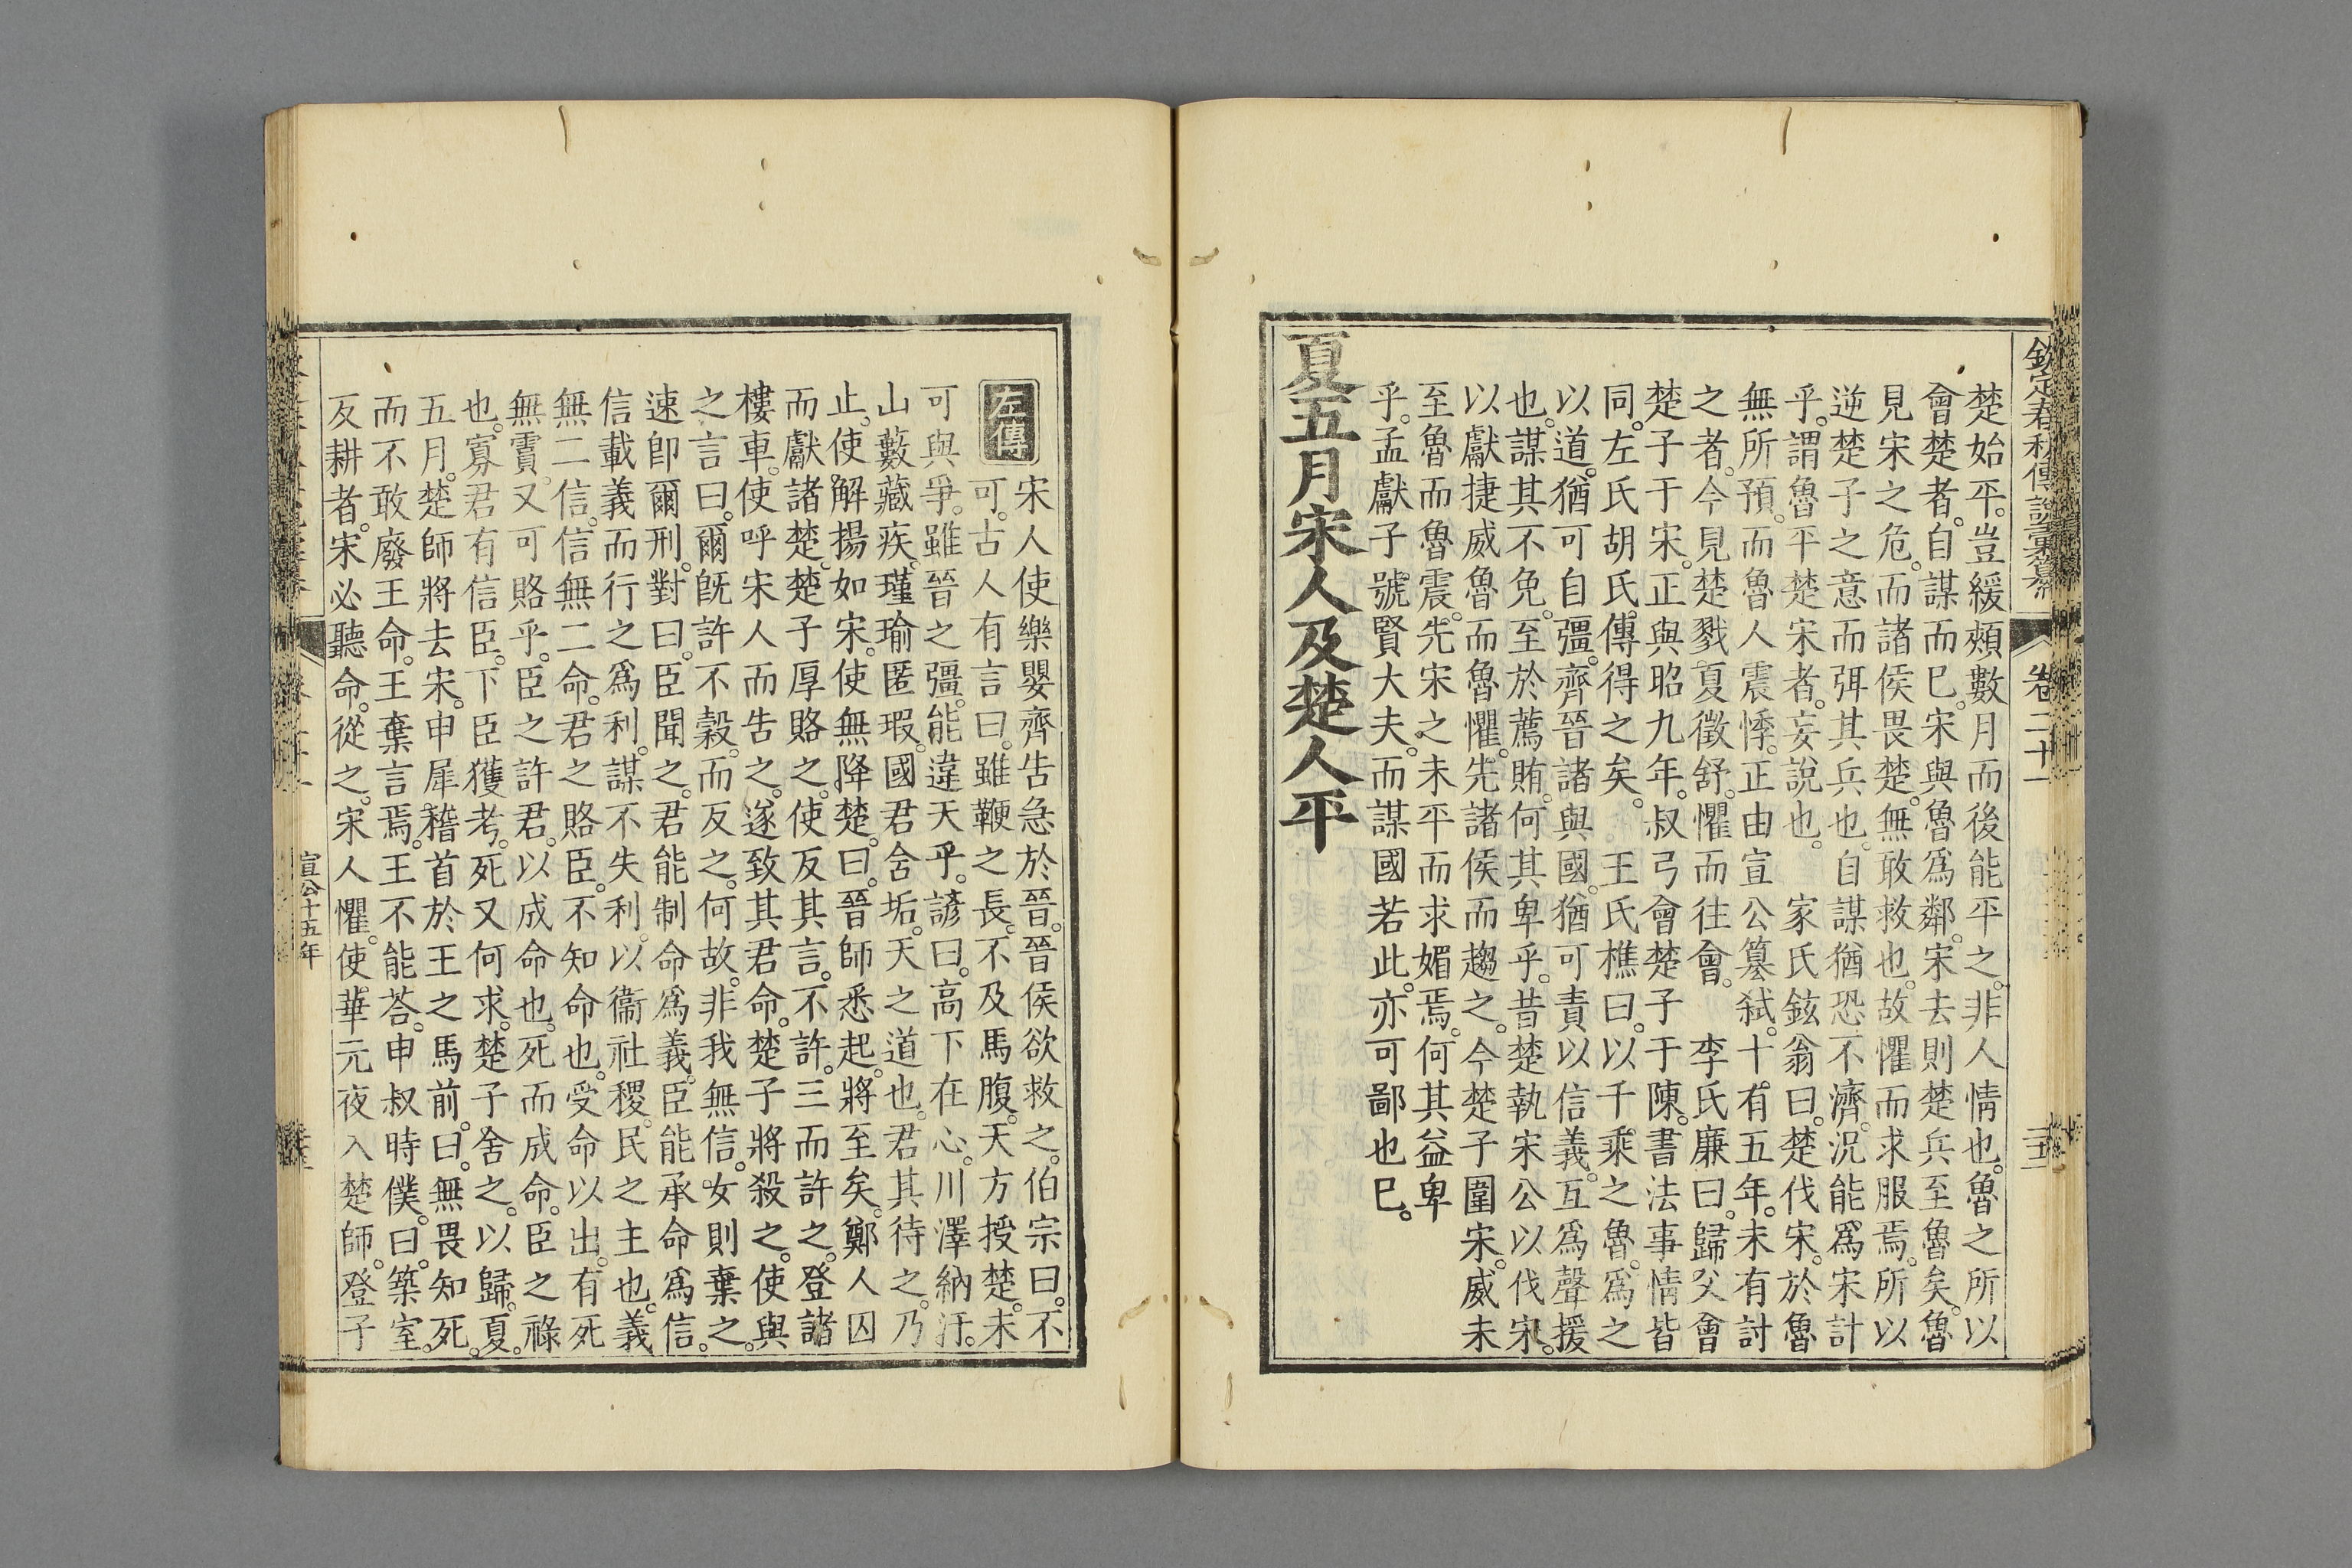 欽定春秋傳說彙纂 卷二十一
楚始平。豈緩頰數月而後能平之。非人情也。魯之所以
會楚者。自謀而已。宋與魯爲鄰。宋去則楚兵至魯矣。魯
見宋之危。而諸侯畏楚。無敢救也。故懼而求服焉。所以
逆楚子之意而弭其兵也。自謀猶恐不濟。況能爲宋計
乎。謂魯平楚宋者。妄說也。 家氏鉉翁曰。楚伐宋。於魯
無所預。而魯人震悸。正由宣公簒弑。十有五年。未有討
之者。今見楚戮夏徵舒。懼而往會。 李氏廉曰。歸父會
楚子于宋。正與昭九年。叔弓會楚子于陳。書法事情皆
同。左氏胡氏傳得之矣。 王氏樵曰。以千乘之魯。爲之
以道。猶可自彊。齊晉諸與國。猶可責以信義。互爲聲援
也。謀其不免。至於薦賄。何其卑乎。昔楚執宋公以伐宋。
以獻捷威魯而魯懼。先諸侯而趨之。今楚子圍宋。威未
至魯而魯震。先宋之未平而求媚焉。何其益卑
乎。孟獻子號賢大夫。而謀國若此。亦可鄙也已。
夏五月宋人及楚人平
左傳
宋人使樂嬰齊告急於晉。晉侯欲救之。伯宗曰。不
可。古人有言曰。雖鞭之長。不及馬腹。天方授楚。未
可與爭。雖晉之彊。能違天乎。諺曰。高下在心。川澤納汙。
山藪藏疾。瑾瑜匿瑕。國君含垢。天之道也。君其待之。乃
止。使解揚如宋。使無降楚。曰。晉師悉起。將至矣。鄭人囚
而獻諸楚。楚子厚賂之。使反其言。不許。三而許之。登諸
樓車。使呼宋人而告之。遂致其君命。楚子將殺之。使與
之言曰。爾旣許不穀。而反之。何故。非我無信。女則棄之。
速卽爾刑。對曰。臣聞之。君能制命爲義。臣能承命爲信。
信載義而行之爲利。謀不失利。以衞社稷。民之主也。義
無二信。信無二命。君之賂臣。不知命也。受命以出。有死
無霣。又可賂乎。臣之許君。以成命也。死而成命。臣之祿
也。寡君有信臣。下臣獲考。死又何求。楚子舍之。以歸。夏。
五月。楚師將去宋。申犀稽首於王之馬前。曰。無畏知死。
而不敢廢王命。王棄言焉。王不能荅。申叔時僕。曰。築室。
反耕者。宋必聽命。從之。宋人懼。使華元夜入楚師。登子
宣公十五年